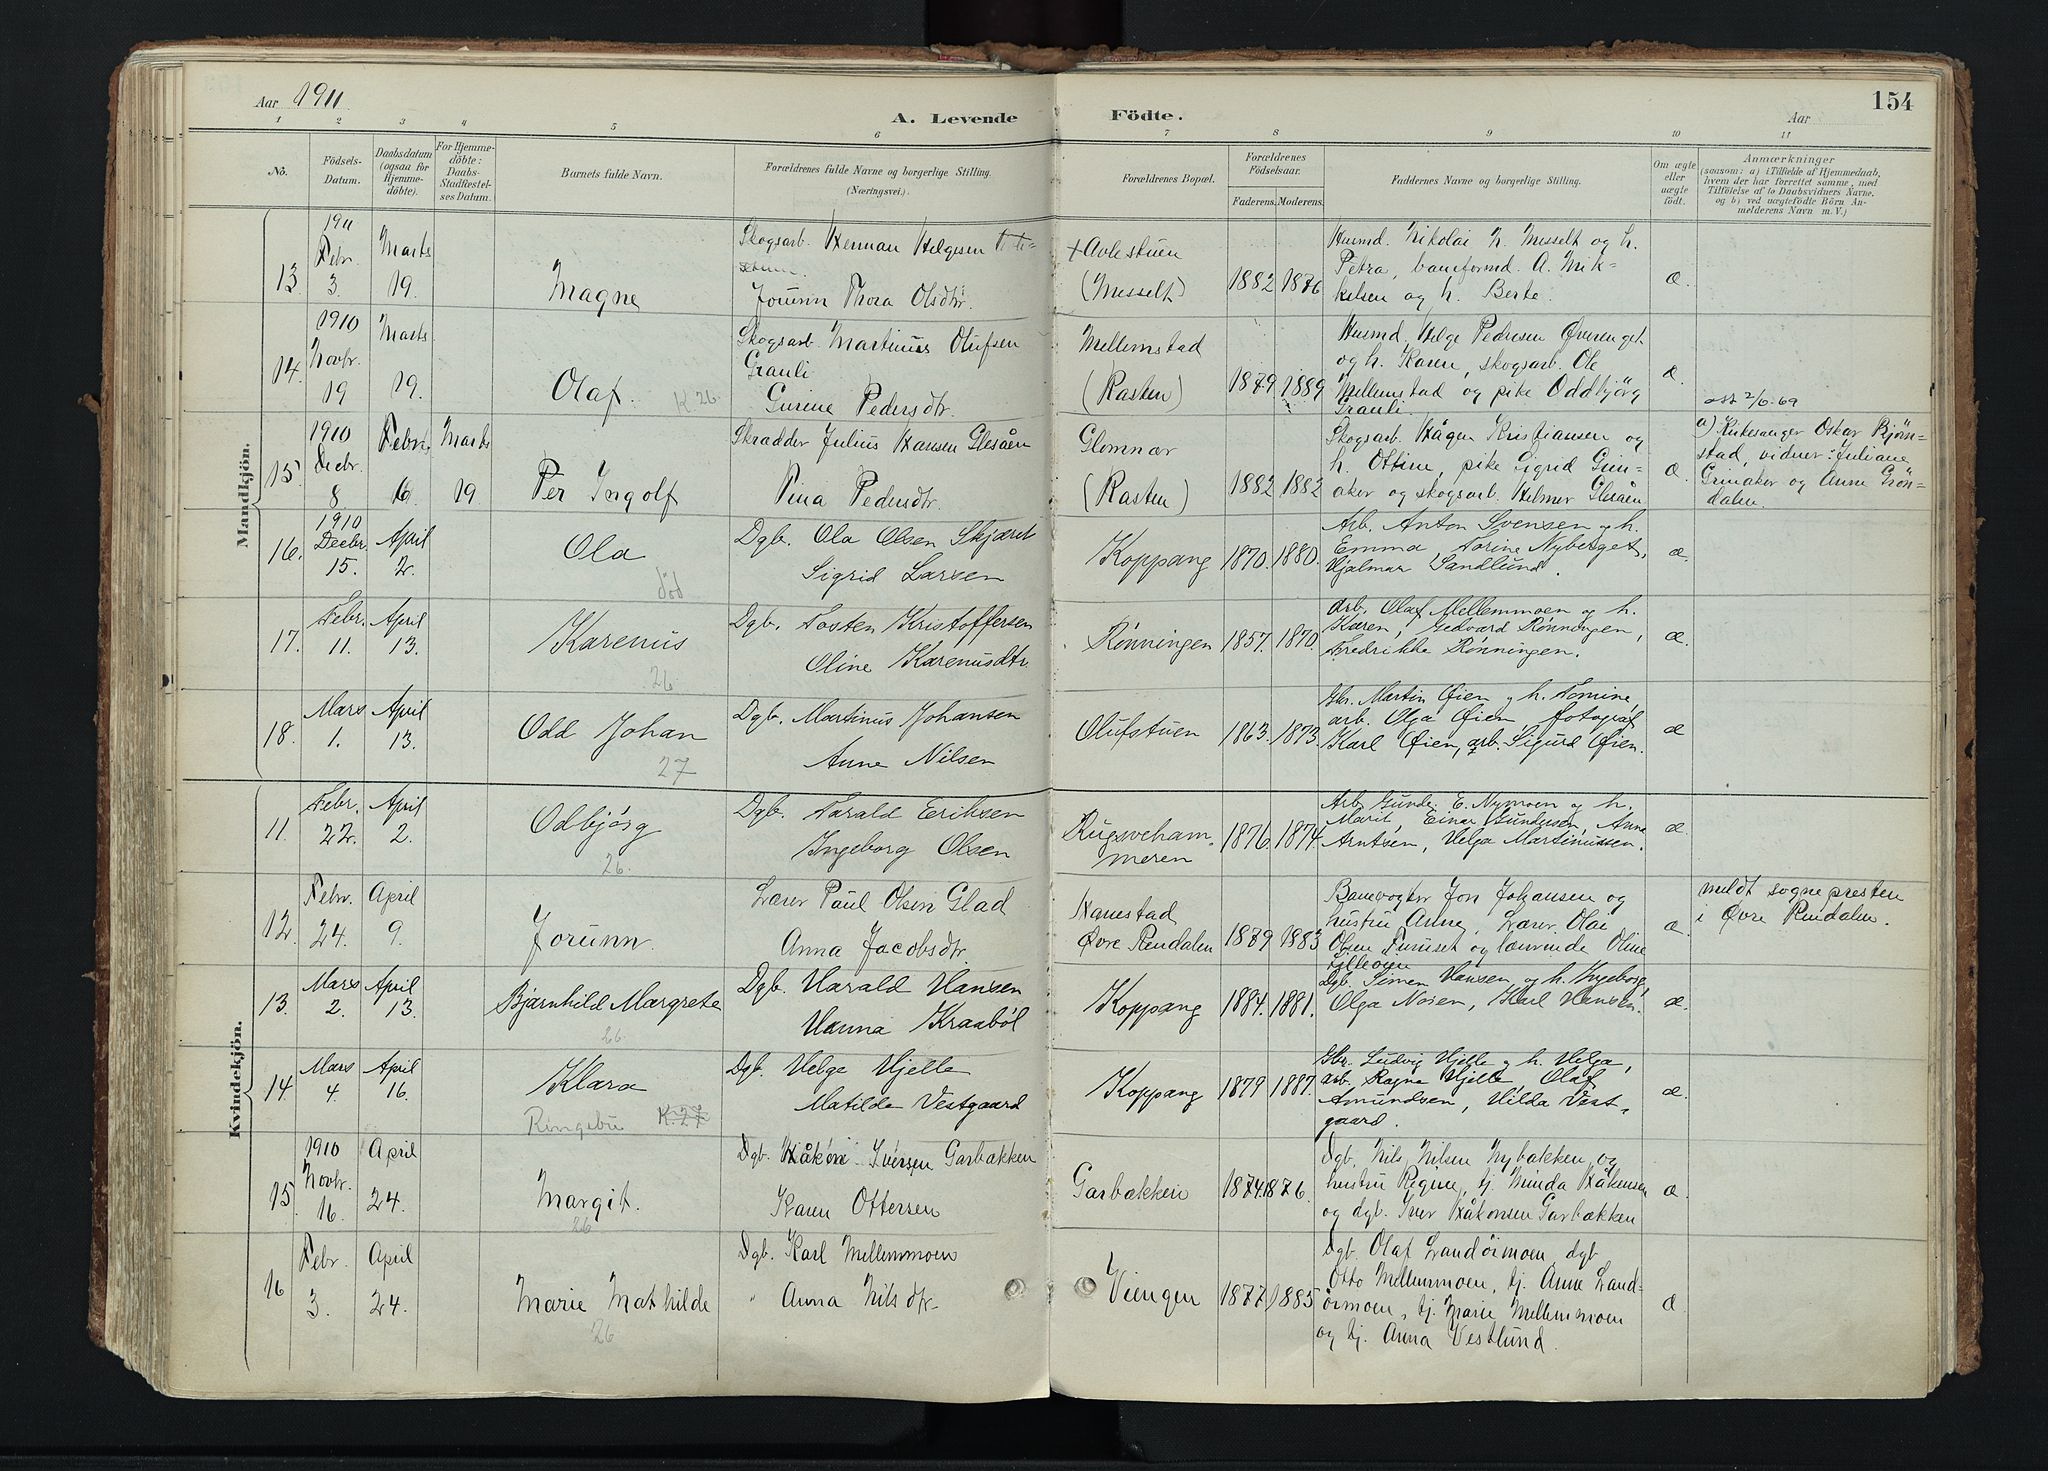 Aar 1911.
A. Levende Födte.
154
Aar
1 2 3 4 5 6 7 8 9 10 11
Nö.
Födsels-Datum.
Daabsdatum (ogsaa for Hjemmedöbte).
For Hjemmedöbte: Daabs-Stadfæstelses Datum.
Barnets fulde Navn.
Forældrenes fulde Navne og borgerlige Stilling. (Næringsvei.)
Forældrenes Bopæl.
Forældrenes Födselsaar.
Faderens. Moderens.
Faddernes Navne og borgerlige Stilling.
Om ægte eller uægte födt.
Anmærkninger
(saasom: a) i Tilfælde af Hjemmedaab,
hvem der har forrettet samme, med
Tilföielse af to Daabsvidners Navne.
og b) ved uægtefödte Börn An-
melderens Navn m. V.)
Mandkjön.
13. 1911 Febr. 3. Marts 19. Magne
Skogsarb. Herman Helgesen
Jorunn Thora Olsdtr.
+ Avlestuen
(Messelt)
1882 1876
Husmd. Nikolai N. Messelt og h.
Petra, baneformd. A. Mik-
kelsen og h. Berte.
æ.
14. 1910 Novbr. 19 Marts 19. Olaf. K 26.
Skogsarb. Martinus Olufsen
Grauli
Gurine Pedersdtr.
Mellemstad
(Rasten)
1879 1889
Husmd. Helge Pedersen Øverenget
og h. Karen, skogsarb. Ole
Mellemstad og pike Oddbjörg
Grauli.
æ.
att 2/6.69
15. 1910 Decbr. 8 Febr. 6 Marts 19. Per Ingolf
Skrædder Julius Hansen Glesåen
Pina Pedersdtr.
Glomnær
(Rasten)
1882 1882
Skogsarb. Hågen Kristiansen og
h. Ottine, pike Sigrid Grin-
aker og skogsarb. Helmer Glesåen
æ.
a) Kirkesanger Oskar Bjørn-
stad, vidner: Juliane
Grinaker og Anne Grön-
dalen.
16. 1910 Decbr. 15. April 2. Ola
död
Dgb. Ola Olsen Skjæret
Sigrid Larsen
Koppang 1870. 1880.
Arb. Anton Svensen og h.
Emma, Torine Nyberget,
Hjalmar Sandlund.
æ.
17. Febr. 11. April 13. Karenus
26
Dgb. Tosten Kristoffersen
Oline Karenusdtr.
Rønningen 1857. 1870.
Arb. Olaf Mellemmoen og h.
Karen, Gedvard Rønningen,
Fredrikke Rönningen.
æ.
18. Mars 1. April 13. Odd Johan
27
Dgb. Martinus Johansen
Anne Nilsen
Olufstuen 1863. 1873.
Gbr. Martin Øien og h. Tomine,
arb. Olga Øien, fotograf
Karl Øien, arb. Sigurd Øien.
æ
Kvindekjön.
11. Febr. 22. April 2. Odbjörg
26.
Dgb. Harald Eriksen
Ingeborg Olsen
Rugsveham-
meren
1876. 1874.
Arb. Gunder E. Nymoen og h.
Marit, Einar Gundersen, Anna
Arntsen, Helga Martinussen.
æ.
12. Febr. 24. April 9. Jorunn.
Lærer Paul Olsen Glad
Anna Jacobsdtr.
Hanestad
Øvre Rendalen
1879. 1883
Banevogter Jon Johansen og
hustru Anne, Lærer Olai
Olsen Furuset og lærerinde Oline
Lilleøien
æ.
meldt sognepresten
i Øvre Rendalen.
13. Mars 2. April 13. Bjarnhild Margrete
26.
Dgb. Harald Hansen
Hanna Kraaböl
Koppang 1884. 1881.
Dgb. Simen Hansen og h. Ingeborg,
Olga Noren, Karl Hansen.
æ.
14. Mars 4. April 16. Klara
Ringebu K.27
Dgb. Helge Hjelle
Matilde Vestgaard
Koppang 1879 1887.
Gbr. Ludvig Hjelle og h. Helga,
arb. Ragna Hjelle, Olaf
Amundsen, Hilda Vest-
gaard.
æ.
15. 1910 Novbr. 16. April 24. Margit.
26
Dgb. Håkon Iversen Garbækken
Karen Ottersen
Garbækken 1874. 1876.
Dgb. Nils Nilsen Nybakken og
hustru Regine, tj. Minda Håkensen
og dgb. Iver Håkonsen Garbækken
æ.
16 Febr. 3. April 24. Marie Mathilde
26
Dgb. Karl Mellemmoen
" Anna Nilsdtr.
Viengen 1877. 1885
Dgb. Olaf Landörmoen, dgb.
Otto Mellemmoen, tj. Anne Land-
örmoen, tj. Marie Mellemmoen
og tj. Anna Vestlund.
æ.